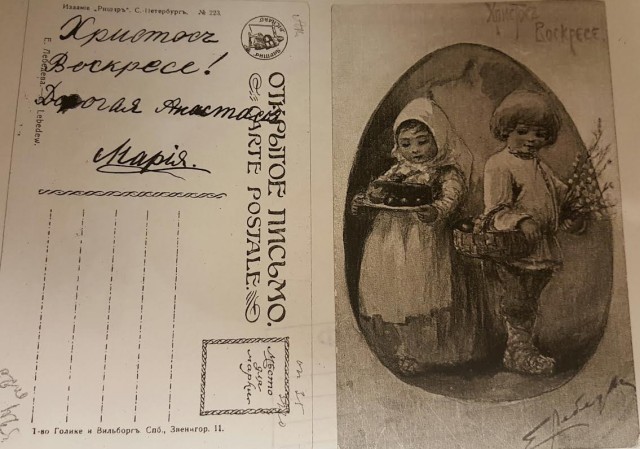 Издание „Ришаръ“. С.-Петербургъ. № 223.
Христосъ
Воскресе!
Дорогая Анастасія
Марія.
Е. Лебедева. Lebedew.
ОТКРЫТОЕ ПИСЬМО.
CARTE POSTALE.
Мѣсто
для
марки
Т-во Голике и Вильборгъ Спб., Звенигор. 11.
Христосъ
Воскресе.
Е. Лебедева